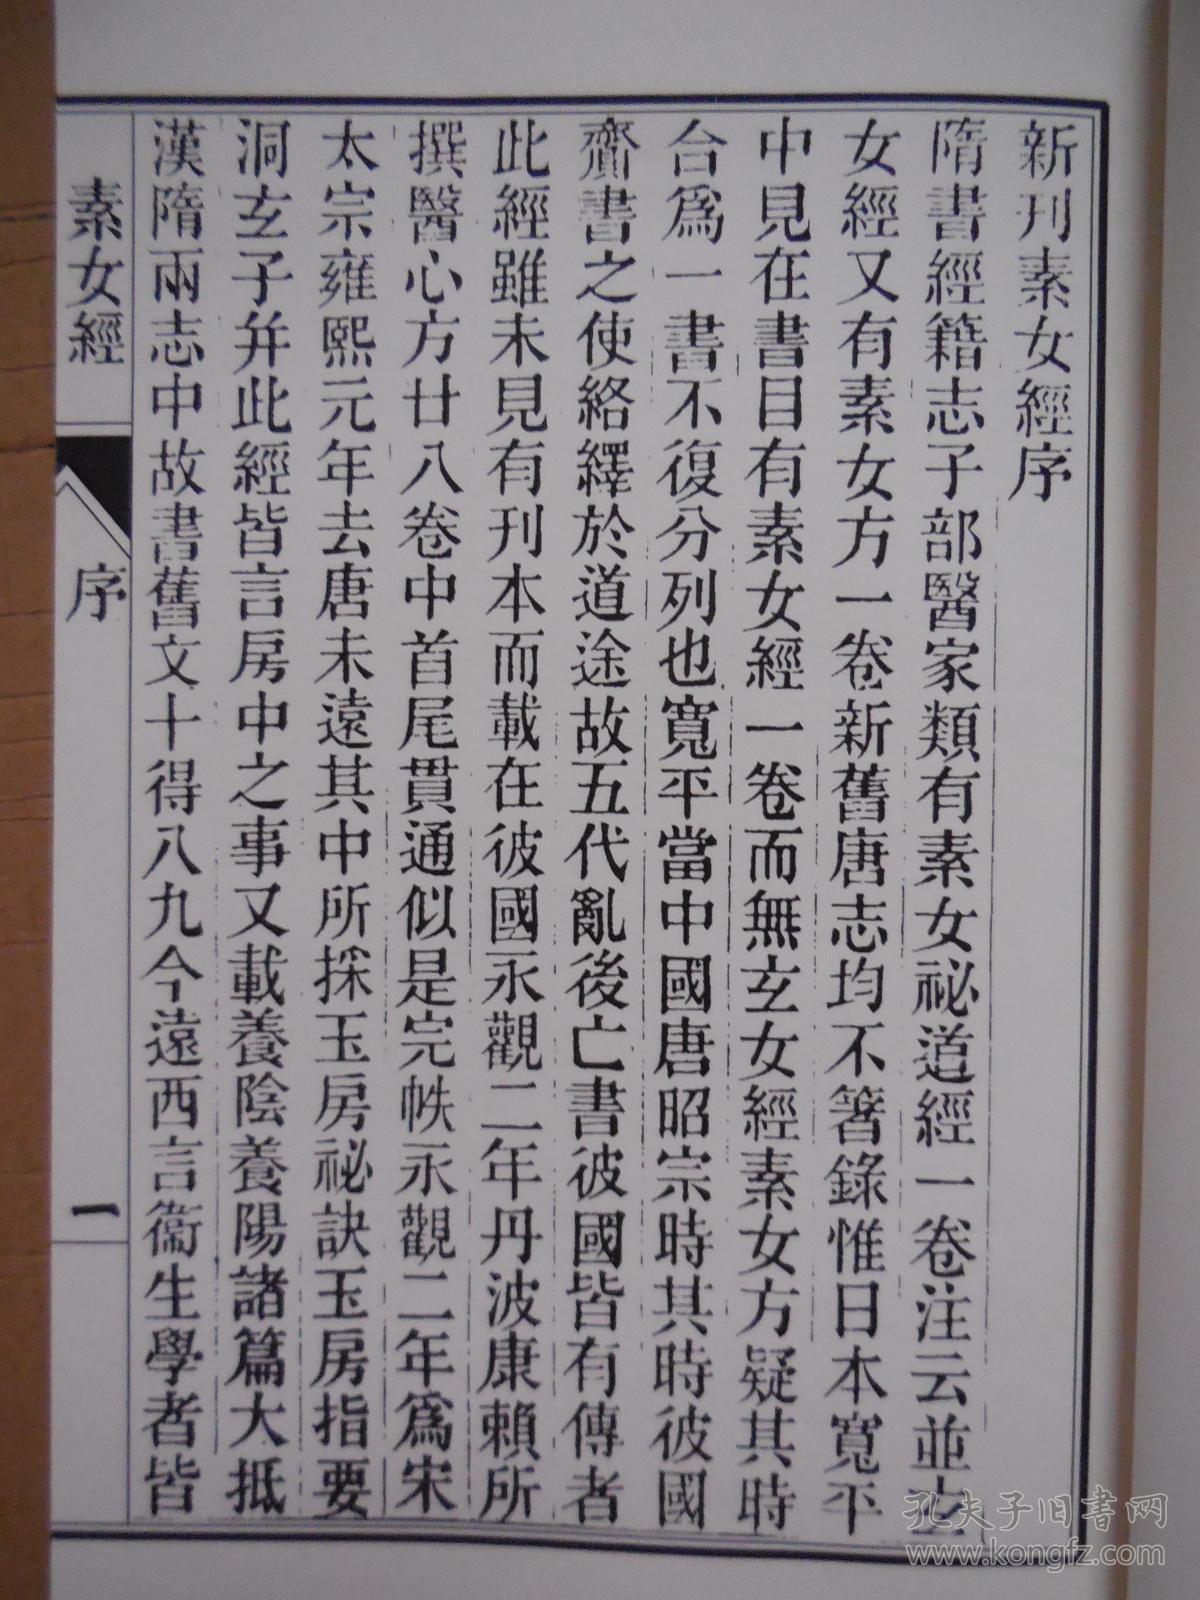 新刊素女經序
隋書經籍志子部醫家類有素女祕道經一卷注云並玄
女經又有素女方一卷新舊唐志均不箸錄惟日本寬平
中見在書目有素女經一卷而無玄女經素女方疑其時
合爲一書不復分列也寬平當中國唐昭宗時其時彼國
齎書之使絡繹於道途故五代亂後亡書彼國皆有傳者
此經雖未見有刊本而載在彼國永觀二年丹波康賴所
撰醫心方廿八卷中首尾貫通似是完帙永觀二年爲宋
太宗雍熙元年去唐未遠其中所採玉房祕訣玉房指要
洞玄子并此經皆言房中之事又載養陰養陽諸篇大抵
漢隋兩志中故書舊文十得八九今遠西言衞生學者皆
素女經
序
一
孔夫子旧书网
www.kongfz.com